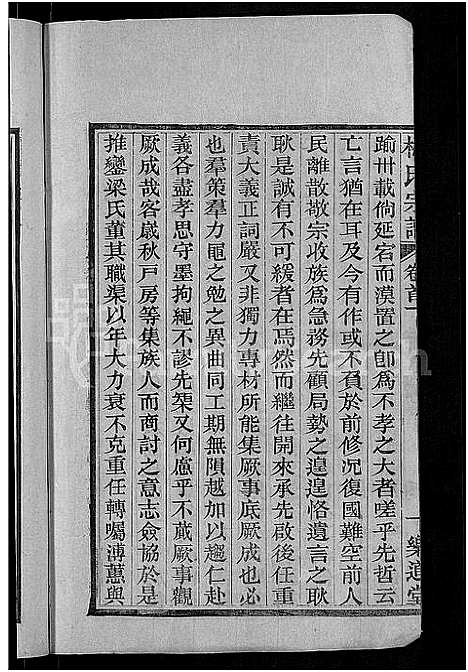 氏宗譜 卷首
樂道堂
踰卅載倘延宕而漠置之卽爲不孝之大者嗟乎先哲云
亡言猶在耳及今成或不負於前修況復國難空前人
民離散敬宗收族爲急務先顧局勢之遑遑恪遺言之耿
耿是誠有不可緩者在焉然而繼往開來承先啟後任重
責大義正詞嚴又非獨力專材所能集厥事底厥成也必
也羣策羣力黽之勉之異曲同工期無隕越加以趨仁赴
義各盡孝思守墨拘繩不謬先榘又何慮乎不蕆厥事觀
厥成哉客歲秋戸房等集族人而商討之意志僉協於是
推鑾梁氏董其職渠以年大力衰不克重任轉囑溥蕙與